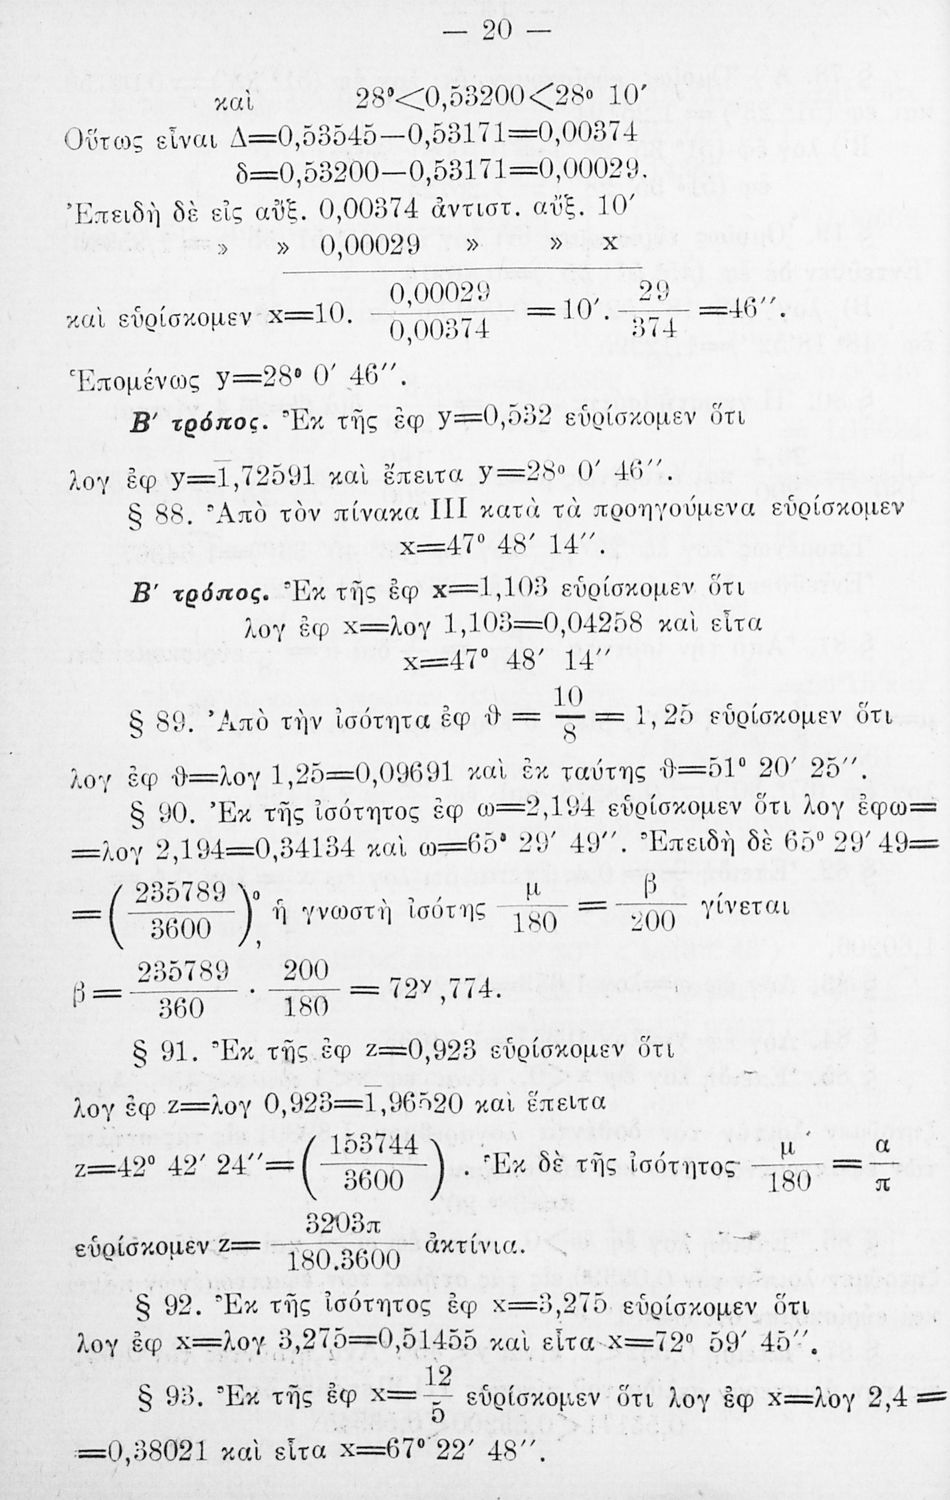 — 20 —
καὶ 28°<0,53200<28° 10′
Οὕτως εἶναι Δ=0,53545—0,53171=0,00374
δ=0,53200—0,53171=0,00029.
Ἐπειδὴ δὲ εἰς αὔξ. 0,00374 ἀντιστ. αὔξ. 10′
» » 0,00029 » » x
καὶ εὑρίσκομεν x=10. 0,00029/0,00374 = 10′. 29/374 =46″.
Ἑπομένως y=28° 0′ 46″.
Β′ τρόπος. Ἐκ τῆς ἐφ y=0,532 εὑρίσκομεν ὅτι
λογ ἐφ y=1̅,72591 καὶ ἔπειτα y=28° 0′ 46″.
§ 88. Ἀπὸ τὸν πίνακα III κατὰ τὰ προηγούμενα εὑρίσκομεν
x=47° 48′ 14″.
Β′ τρόπος. Ἐκ τῆς ἐφ x=1,103 εὑρίσκομεν ὅτι
λογ ἐφ x=λογ 1,103=0,04258 καὶ εἶτα
x=47° 48′ 14″
§ 89. Ἀπὸ τὴν ἰσότητα ἐφ ϑ = 10/8 = 1,25 εὑρίσκομεν ὅτι
λογ ἐφ ϑ=λογ 1,25=0,09691 καὶ ἐκ ταύτης ϑ=51° 20′ 25″.
§ 90. Ἐκ τῆς ἰσότητος ἐφ ω=2,194 εὑρίσκομεν ὅτι λογ ἐφω=
=λογ 2,194=0,34134 καὶ ω=65° 29′ 49″. Ἐπειδὴ δὲ 65° 29′ 49=
=(235789/3600)°, ἡ γνωστὴ ἰσότης μ/180 = β/200 γίνεται
β = 235789/360 · 200/180 = 72ᵞ,774.
§ 91. Ἐκ τῆς ἐφ z=0,923 εὑρίσκομεν ὅτι
λογ ἐφ z=λογ 0,923=1̅,96520 καὶ ἔπειτα
z=42° 42′ 24″=(153744/3600). Ἐκ δὲ τῆς ἰσότητος μ/180 = α/π
εὑρίσκομεν z= 3203π/180.3600 ἀκτίνια.
§ 92. Ἐκ τῆς ἰσότητος ἐφ x=3,275 εὑρίσκομεν ὅτι
λογ ἐφ x=λογ 3,275=0,51455 καὶ εἶτα x=72° 59′ 45″.
§ 93. Ἐκ τῆς ἐφ x= 12/5 εὑρίσκομεν ὅτι λογ ἐφ x=λογ 2,4 =
=0,38021 καὶ εἶτα x=67° 22′ 48″.